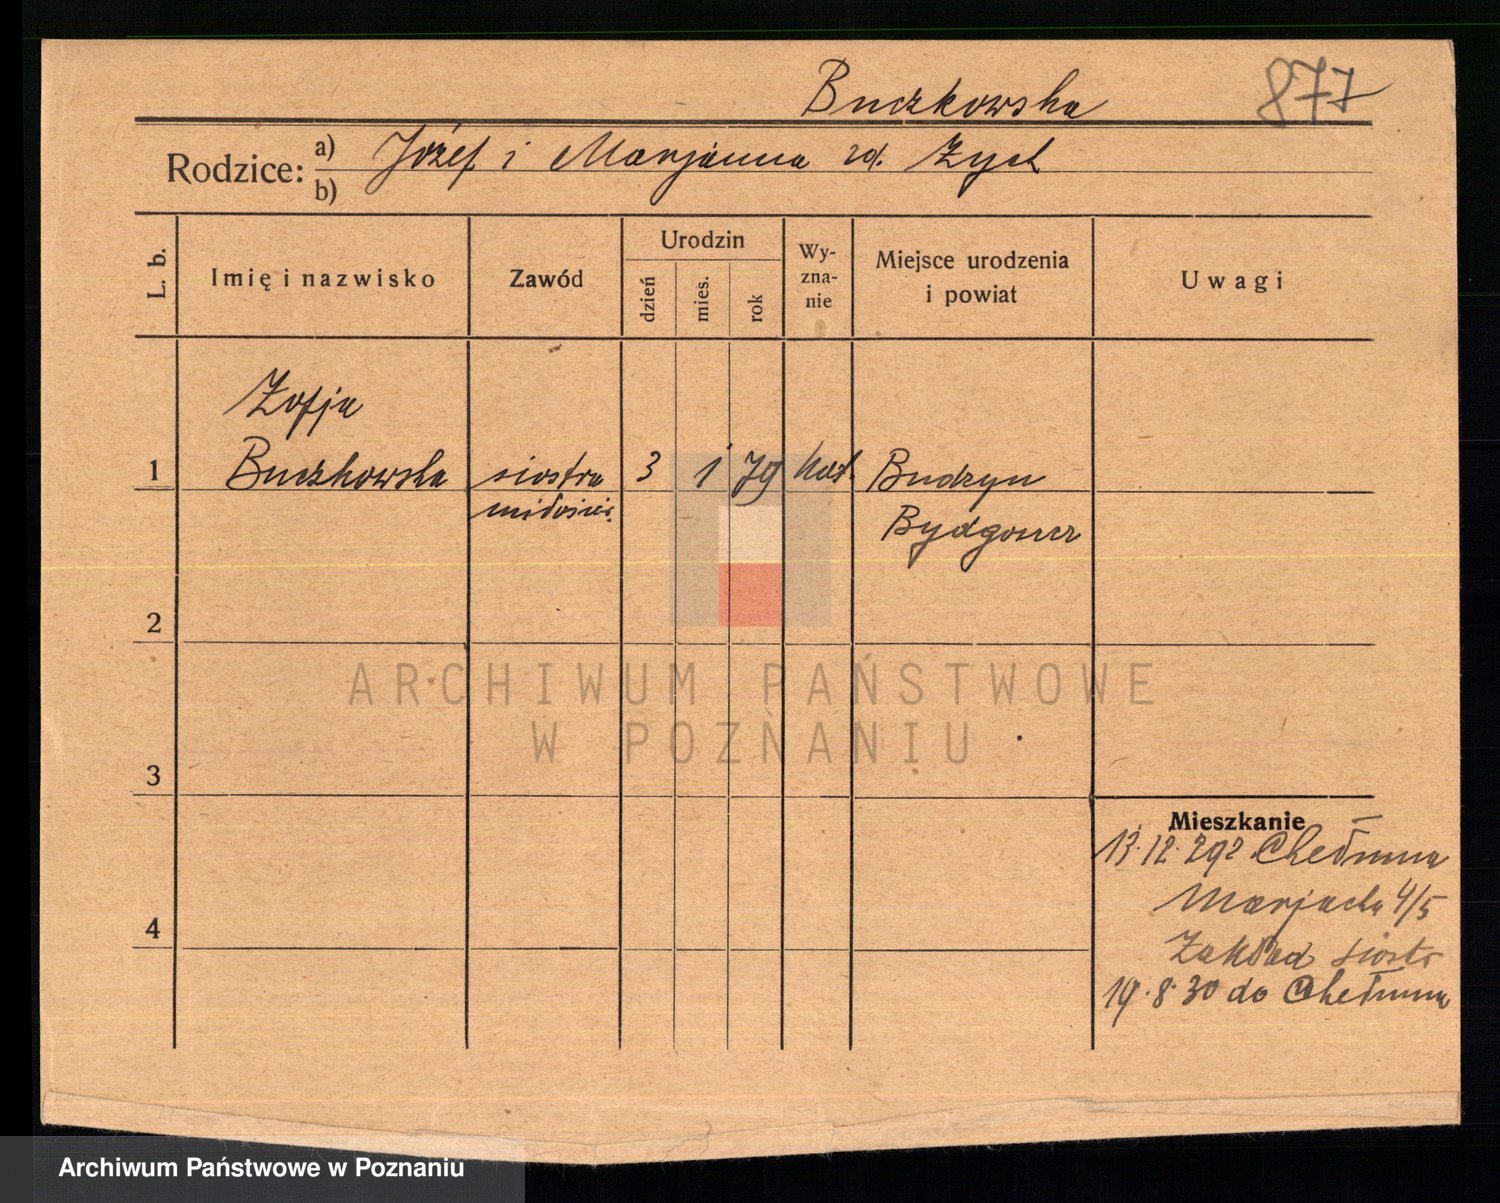 Buczkowska 877
Rodzice: a) Józef i Marjanna zd. Zych
b)
L. b.
Imię i nazwisko
Zawód
Urodzin
dzień
mies.
rok
Wy-
zna-
nie
Miejsce urodzenia
i powiat
Uwagi
Zofja
1 Buczkowska siostra 3 1 79 kat. Budzyn
miłosier. Bydgoszcz
2
3
4
Mieszkanie
13.12.29 z Chełmna
Marjacka 4/5
Zakład siostr
19.8.30 do Chełmna
ARCHIWUM PAŃSTWOWE
W POZNANIU
Archiwum Państwowe w Poznaniu